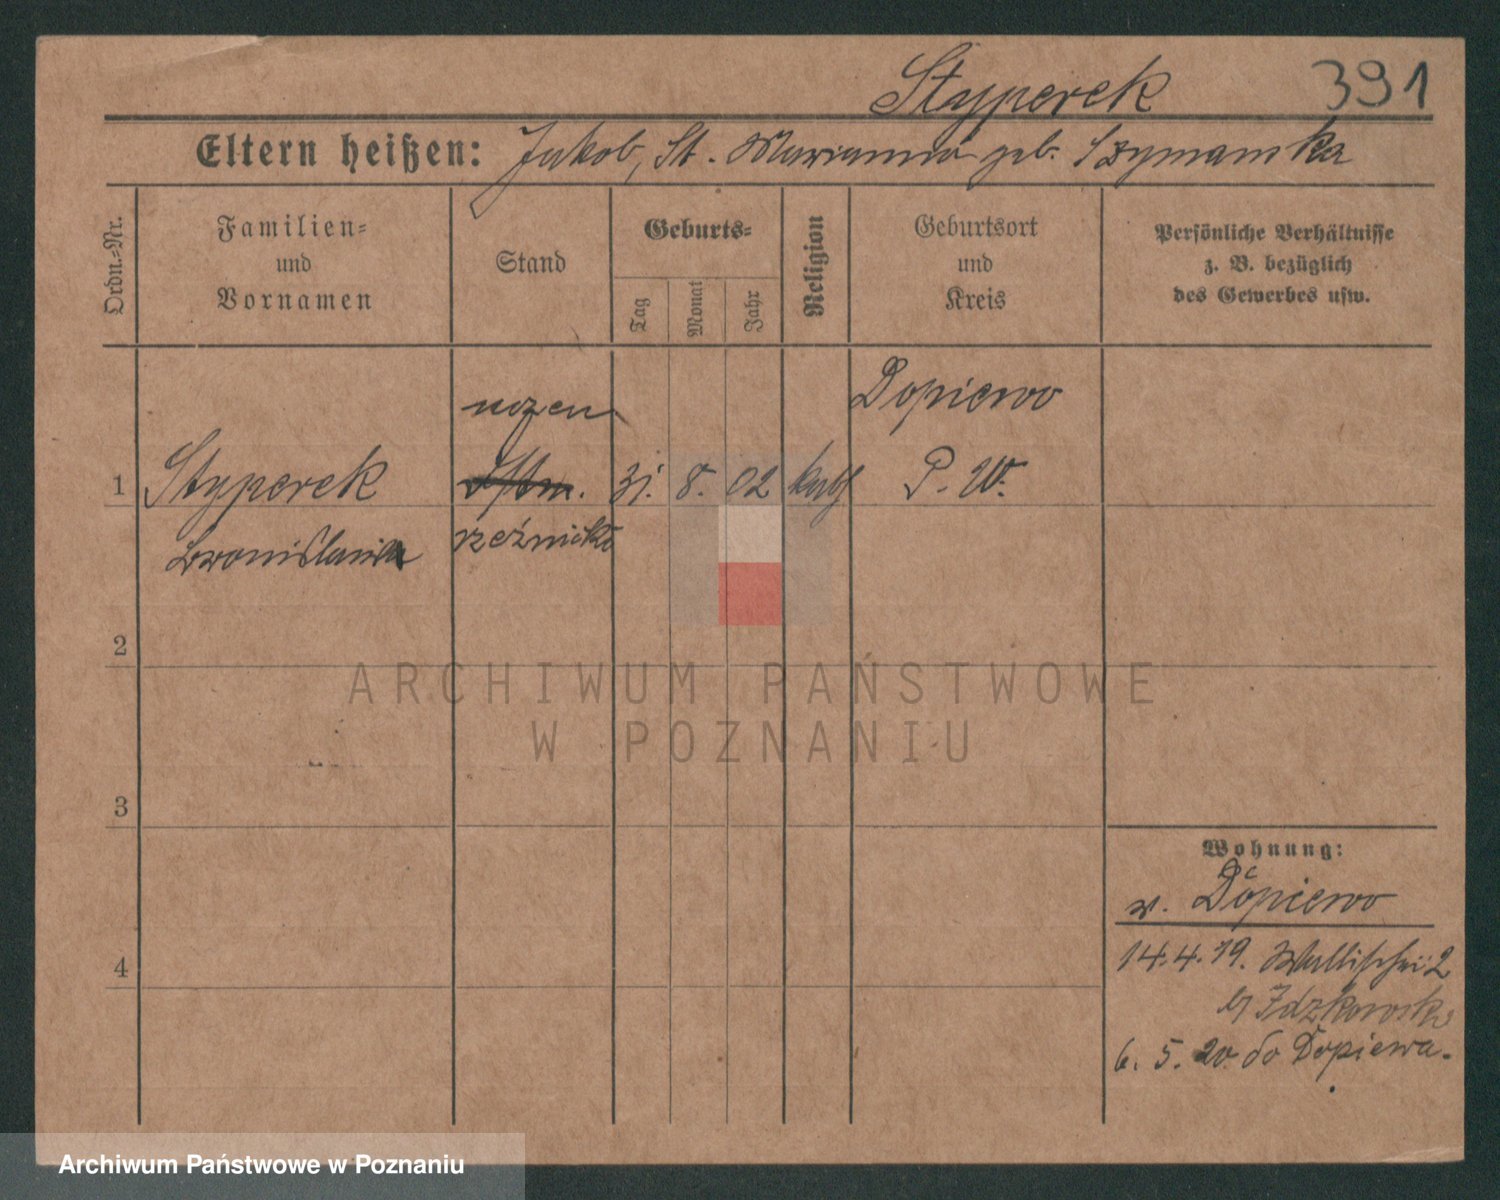 Styperek 391
Eltern heißen: Jakob, St. Marianna geb. Szymanska
Ordn.-Nr.
Familien-
und
Vornamen
Stand
Geburts-
Tag
Monat
Jahr
Religion
Geburtsort
und
Kreis
Persönliche Verhältnisse
z. B. bezüglich
des Gewerbes usw.
uczen
Dopiewo
1 Styperek 31. 8. 02 kath P. W.
rzeźnicki
2
3
4
Wohnung:
v. Dopiewo
14.4.19. Wallischei 2
Idzkowski
6. 5. 20. do Dopiewa.
ARCHIWUM PAŃSTWOWE
W POZNANIU
Archiwum Państwowe w Poznaniu